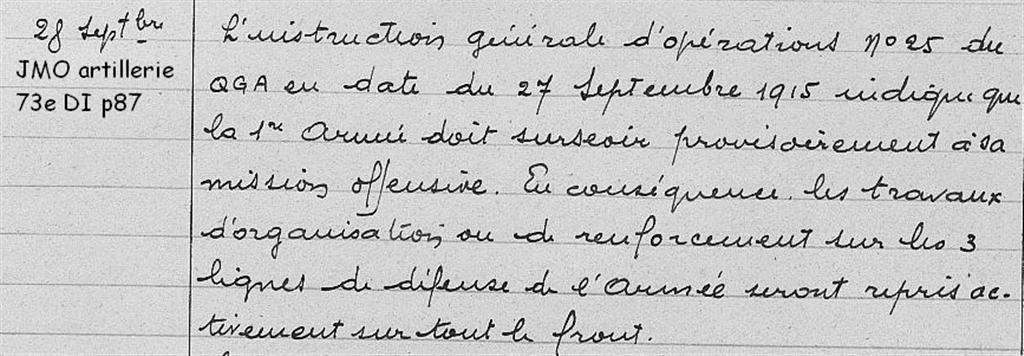 28 Septbre
JMO artillerie
73e DI p87
L'instruction générale d'opérations No 25 du
QGA en date du 27 Septembre 1915 indique que
la 1re Armée doit surseoir provisoirement à sa
mission offensive. En conséquence, les travaux
d'organisation ou de renforcement sur les 3
lignes de défense de l'Armée seront repris ac-
tivement sur tout le front.